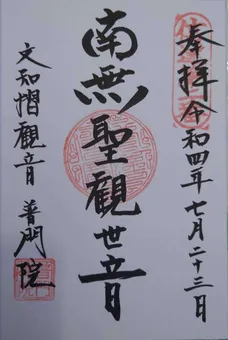 奉拝 令和四年七月二十三日
南無聖観世音
文知摺観音 普門院